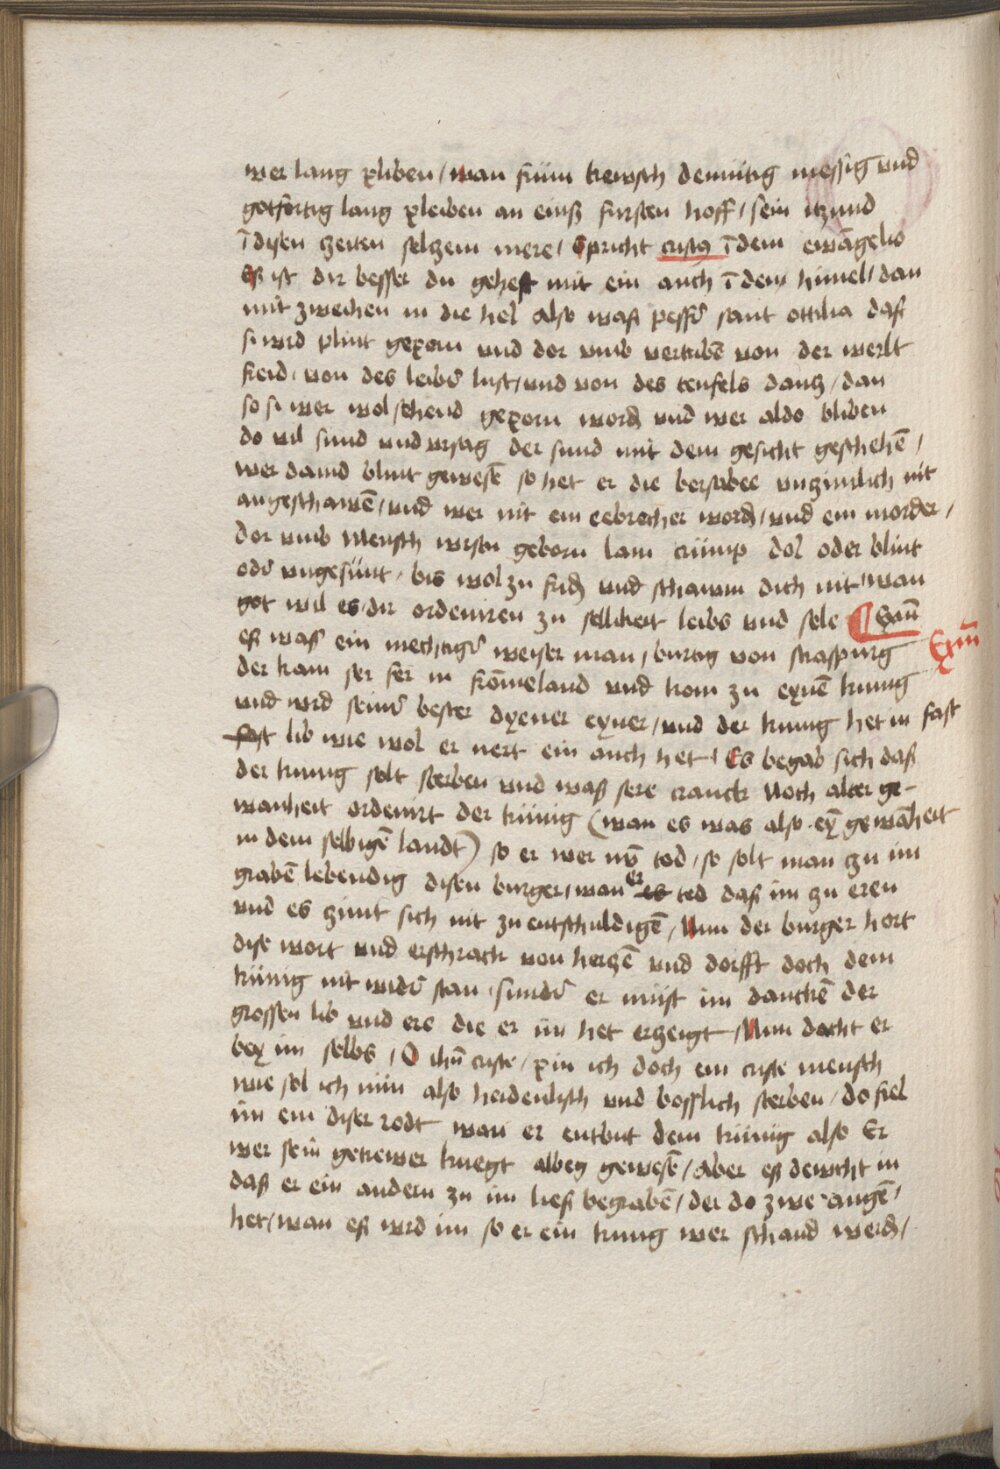 wer lang pliben / wan frum kewsch demutig messig vnd
gotfortig lang pleiben an einß fursten hoff / sein itzund
ī disen zeiten selzem mere / Spricht cristꝰ ī dem ewāgelio
eß ist dir besser du gehest mit ein aug ī den himel / dan
mit zweihen in die hel also waß pesser sant ottilia daß
si wrd plint geporn vnd dor vmb vertribē von der werlt
freid / von des leibs lust / vnd von des teufels dantz / dan
so si wer wol sehend geporn word vnd wer aldo bliben
do vil sund vnd vrsag der sund mit dem gesicht geschehē /
wer dauid blint gewesē so het er die bersabee vnzimlich nit
angeschawē / vnd wer nit ein eebrecher word / vnd ein morder /
dor vmb mensch wrstu geborn lam crump dol oder blint
oder vngesunt / bis wol zu frid vnd schamm dich nit / wan
got wil es dir ordeniren zu sellikeit leibs vnd sele ¶ Wan
eß waß ein mechtiger weiser man / burtig von straspurg
Exm̄
der kam ser fer in frömeland vnd kom zu eynē kunig
vnd wrd seiner bester dyener eyner / vnd der kunig het in fast
fast lib wie wol er nert ein aug het / Es begab sich daß
der kunig solt sterben vnd waß sere cranck Noch alter ge-
wanheit ordenirt der künig (wan es was also ey gewāheit
in dem selbigē landt) so er wer nū tod / so solt man zu im
grabē lebendig disen burger / wan er es ted daß im zu eren
vnd es zimt sich nit zu entschuldigē / Nun der burger hort
dise wort vnd erschrack von hertzē vnd dorfft doch dem
künig nit wider stan / sunder er must im danckē der
grossen lib vnd ere die er im het erzeigt / Nun dacht er
bey im selbs / O ihū criste / pin ich doch ein criste mensch
wie sol ich nun also heidenisch vnd bosslich sterben / do fiel
im ein diser rodt wan er entbut dem künig also Er
wer sein getrewer knegt alweg gewesē / Aber eß dewcht in
daß er ein andern zu im ließ begrabē / der do zwe augē /
het / wan eß wrd im so er ein kunig wer schand werd /